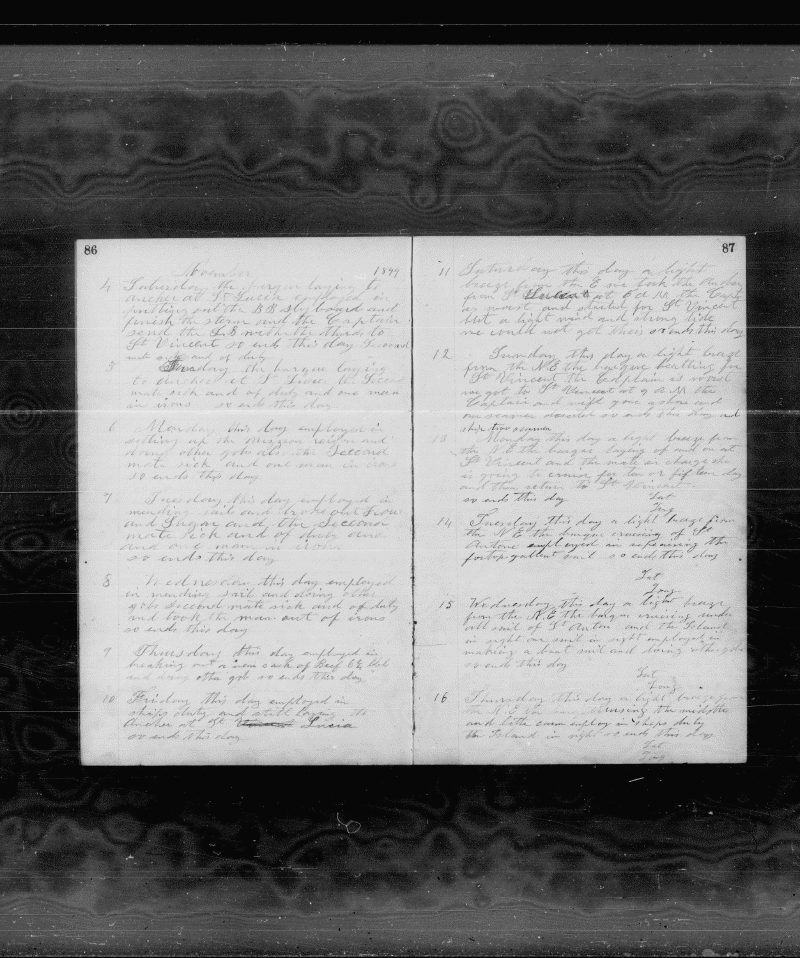 86
November 1899
4 Saturday the barque laying to
anchor at St Lucia employed in
putting out the BB board and
finish the and the Captain
send the to
St Vincent so ends this day Second
mate sick and of duty
5 Sunday the barque laying
to anchor at St Lucia the Second
mate sick and of duty and one man
in irons so ends this day
6 Monday this day employed in
setting up the and
doing other gobs also the Second
mate sick and one man in irons
so ends this day
7 Tuesday this day employed in
mending sail and broke out
and Sugar and the second
mate sick and of duty and
and one man in irons
so ends this day
8 Wednesday this day employed
in mending sail and doing other
gobs Second mate sick and of duty
and took the man out of irons
so ends this day
9 Thursday this day employed in
breaking out a new cask of Beef
and doing othe gob so ends this day
10 Friday this day employed in
ships duty and still laying to
Anchor at St Lucia
so ends this day
87
11 Saturday this day a light
breeze from the E we took the Anchor
from St at 6 A M the Captn
is worst and started for St Vincent
but a light wind and strong tide
we could not got theis so ends this day
12 Sunday this day a light breeze
from the N E the barque for
St Vincent the Captain is worst
we got to St Vincent at 9 A M the
Captain and wife gone ashore and
one seaman so ends this day and
ship two seamen
13 Monday this day a light breeze from
the N E the barque laying of and on at
St Vincent and the mate in charge she
is going to cruise for ten or fifteen day
and then return to St Vincent
so ends this day
Lat
Long
14 Tuesday this day a light breeze from
the N E the barque cruising of St
Antone employed in repairing the
foretopgallant sail so ends this day
Lat
Long
15 Wednesday this day a light breeze
from the N.E the barque cruising under
all sail of St Anton and the Island
in sight one sail in sight employed in
making a boat sail and doing othe gobs
so ends this day
Lat
Long
16 Thursday this day a light breeze from
the N.E the cruising the
and employ in ships duty
the Island in sight so ends this day
Lat
Long